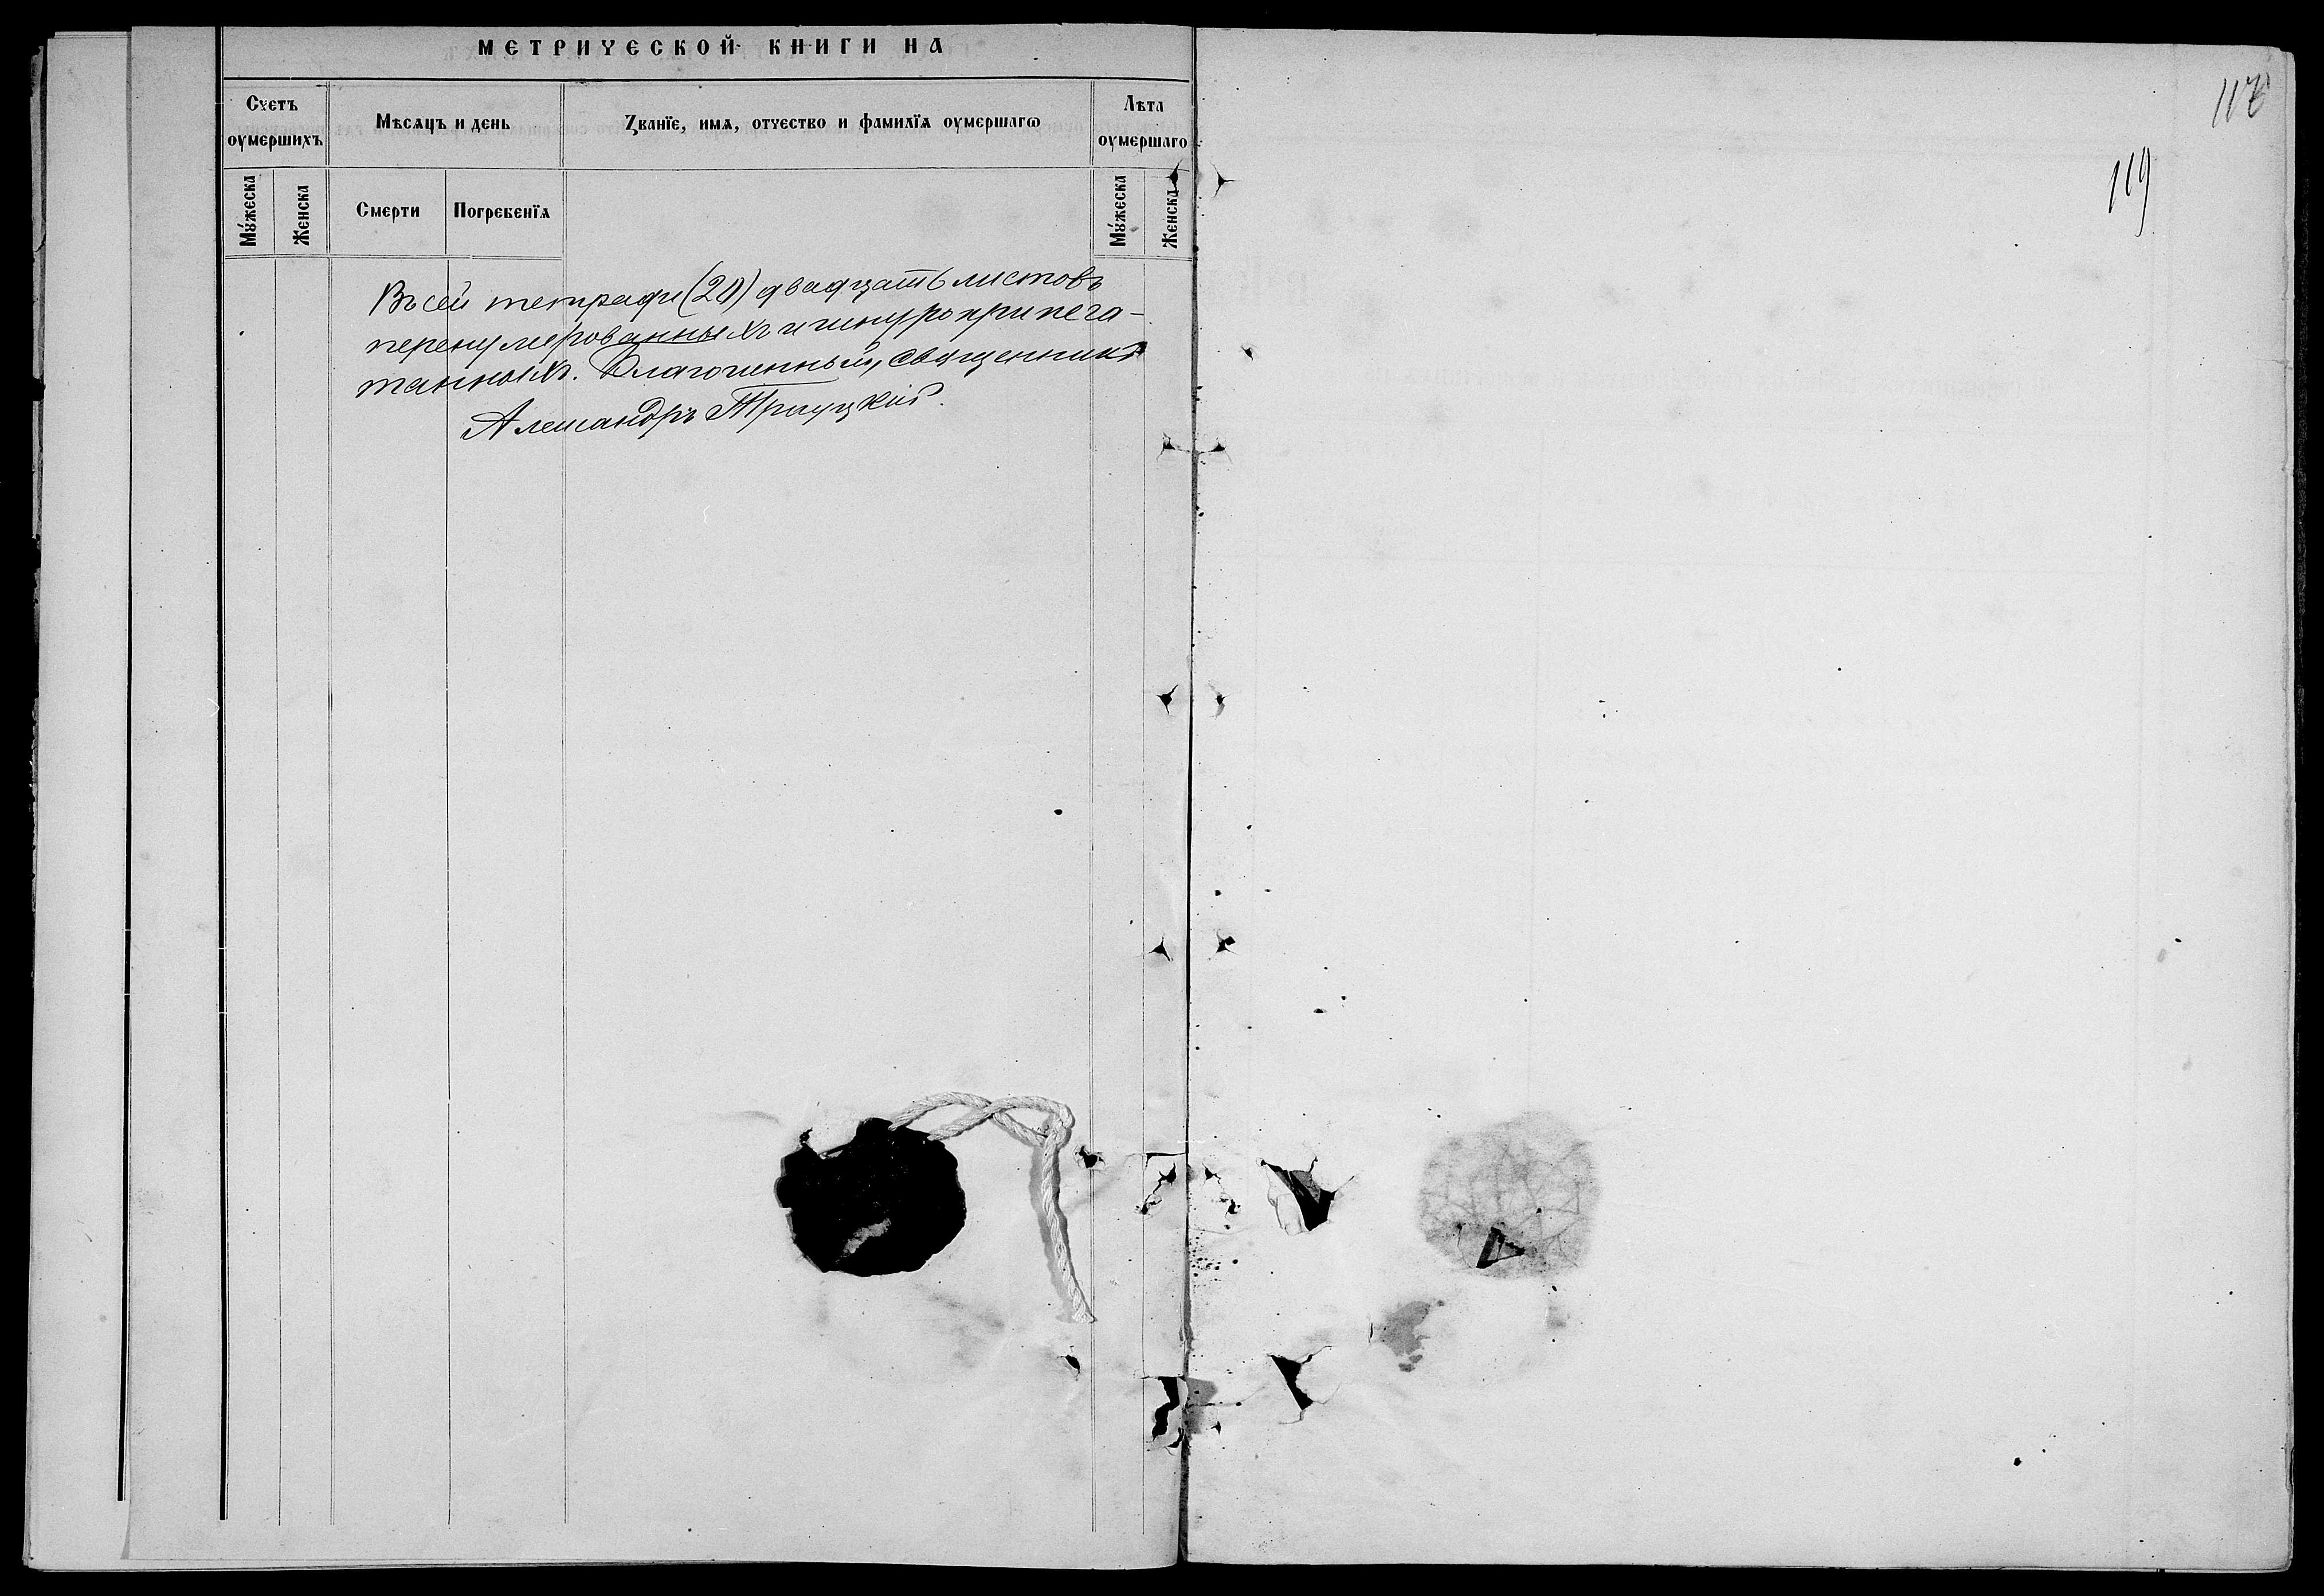 МЕТРИЧЕСКОЙ КНИГИ НА
Счетъ оумершихъ
Мѣсяцъ и день
Званїе, имѧ, отчество и фамилїѧ оумершагѡ
Лѣта оумершаго
Мꙋ́жеска
Женска
Смерти
Погребенїѧ
Мꙋ́жеска
Женска
Въ сей тетради (20) двадцать листовъ
перенумерованныхъ и шнуропричеча-
танныхъ. Благочинный, священникъ
Александръ Троицкій.
119